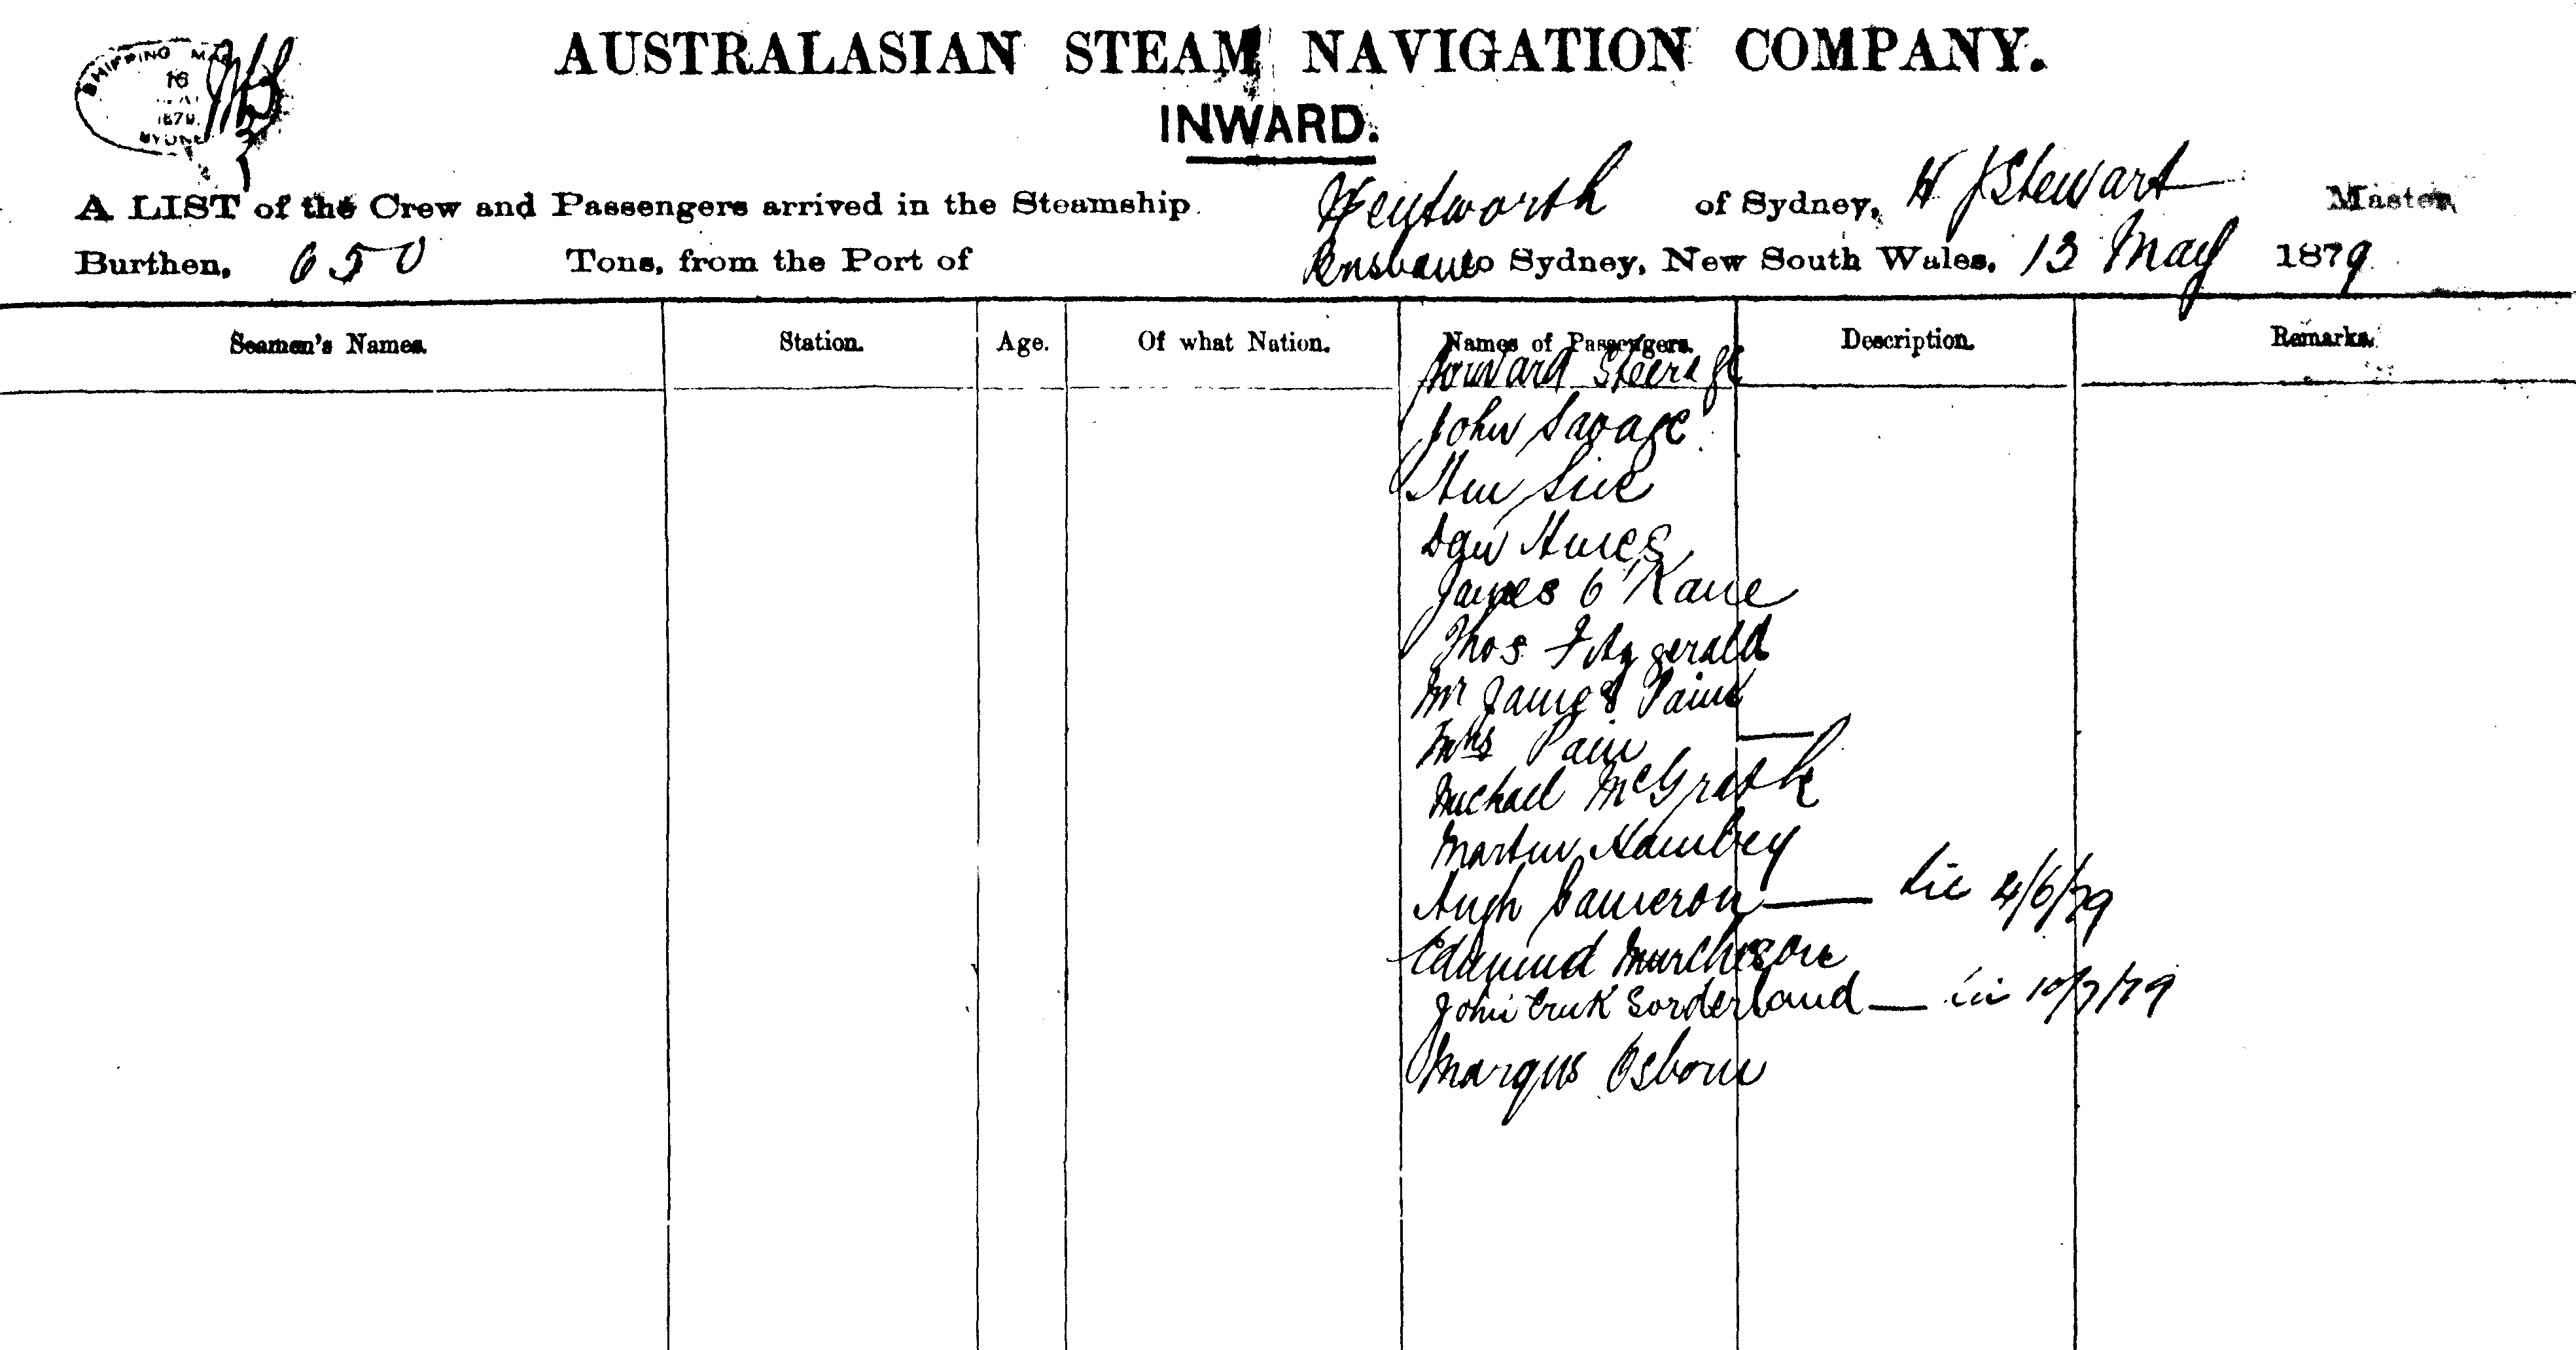 AUSTRALASIAN STEAM NAVIGATION COMPANY.
INWARD.
SHIPPING
16
1879
SYDNEY
A LIST of the Crew and Passengers arrived in the Steamship Wentworth of Sydney, H J Stewart Master
Burthen, 650 Tons, from the Port of Brisbane to Sydney, New South Wales, 13 May 1879
Seamen's Names. Station. Age. Of what Nation. Names of Passengers. Description. Remarks.
Forward Steerage
John Savage
Dan
James O'Kane
Thos Fitzgerald
Mr James Pain
Mrs Pain
Michael McGrath
Martin
Hugh Cameron — Lic 4/6/79
Edmund Murchison
John Erick Sorderland — Lic 10/7/79
Marqus Osborn